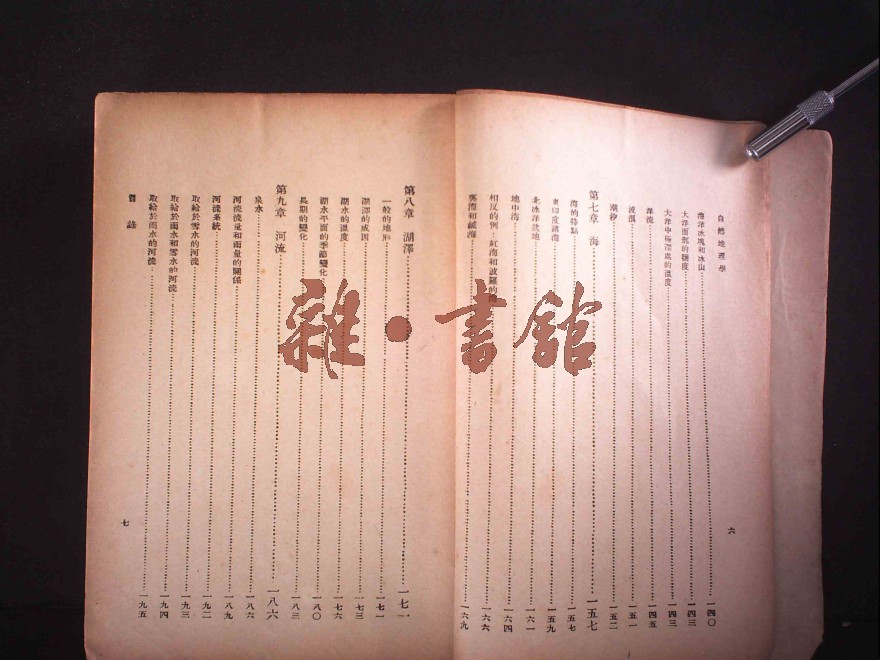 自然地理學
海洋冰塊和冰山……一四〇
大洋面部的鹽度……一四三
大洋中極深處的溫度……一四三
洋流……一四五
波浪……一五一
潮汐……一五二
第七章 海……一五七
海的特點……一五七
東印度諸海……一五九
北冰洋盆地……一六一
地中海……一六四
相反的例：紅海和波羅的……一六六
裏海和鹹海……一六九
六
第八章 湖澤……一七一
一般的地形……一七一
湖澤的成因……一七三
湖水的溫度……一七六
湖水平面的季節變化……一八〇
長期的變化……一八三
第九章 河流……一八六
泉水……一八六
河流流量和雨量的關係……一八九
河流系統……一九二
取給於雪水的河流……一九三
取給於雨水和雪水的河流……一九四
取給於雨水的河流……一九五
目錄
七
雜·書館